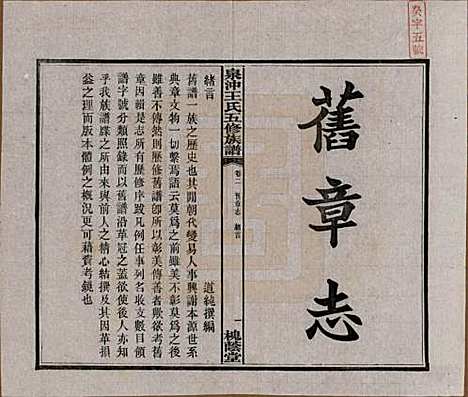 癸字五號
舊章志
泉沖王氏五修族譜
卷二 舊章志 緒言
一 槐蔭堂
緒言
道純撰編
舊譜一族之歷史也其閒朝代變易人事興謝本源世系
典章文物一切繫焉語云莫爲之前雖美不彰莫爲之後
雖善不傳然則歷修舊譜卽所以彰美傳善者歟欲存舊
章因輯是志所有歷修序跋凡例任事列名收支數目領
譜字號分類照錄而以舊譜沿革冠之蓋欲使後人亦知
我族譜牒之所由來與前人之精心結撰及其因革損
益之理而版本體例之概況更可藉資考鏡也